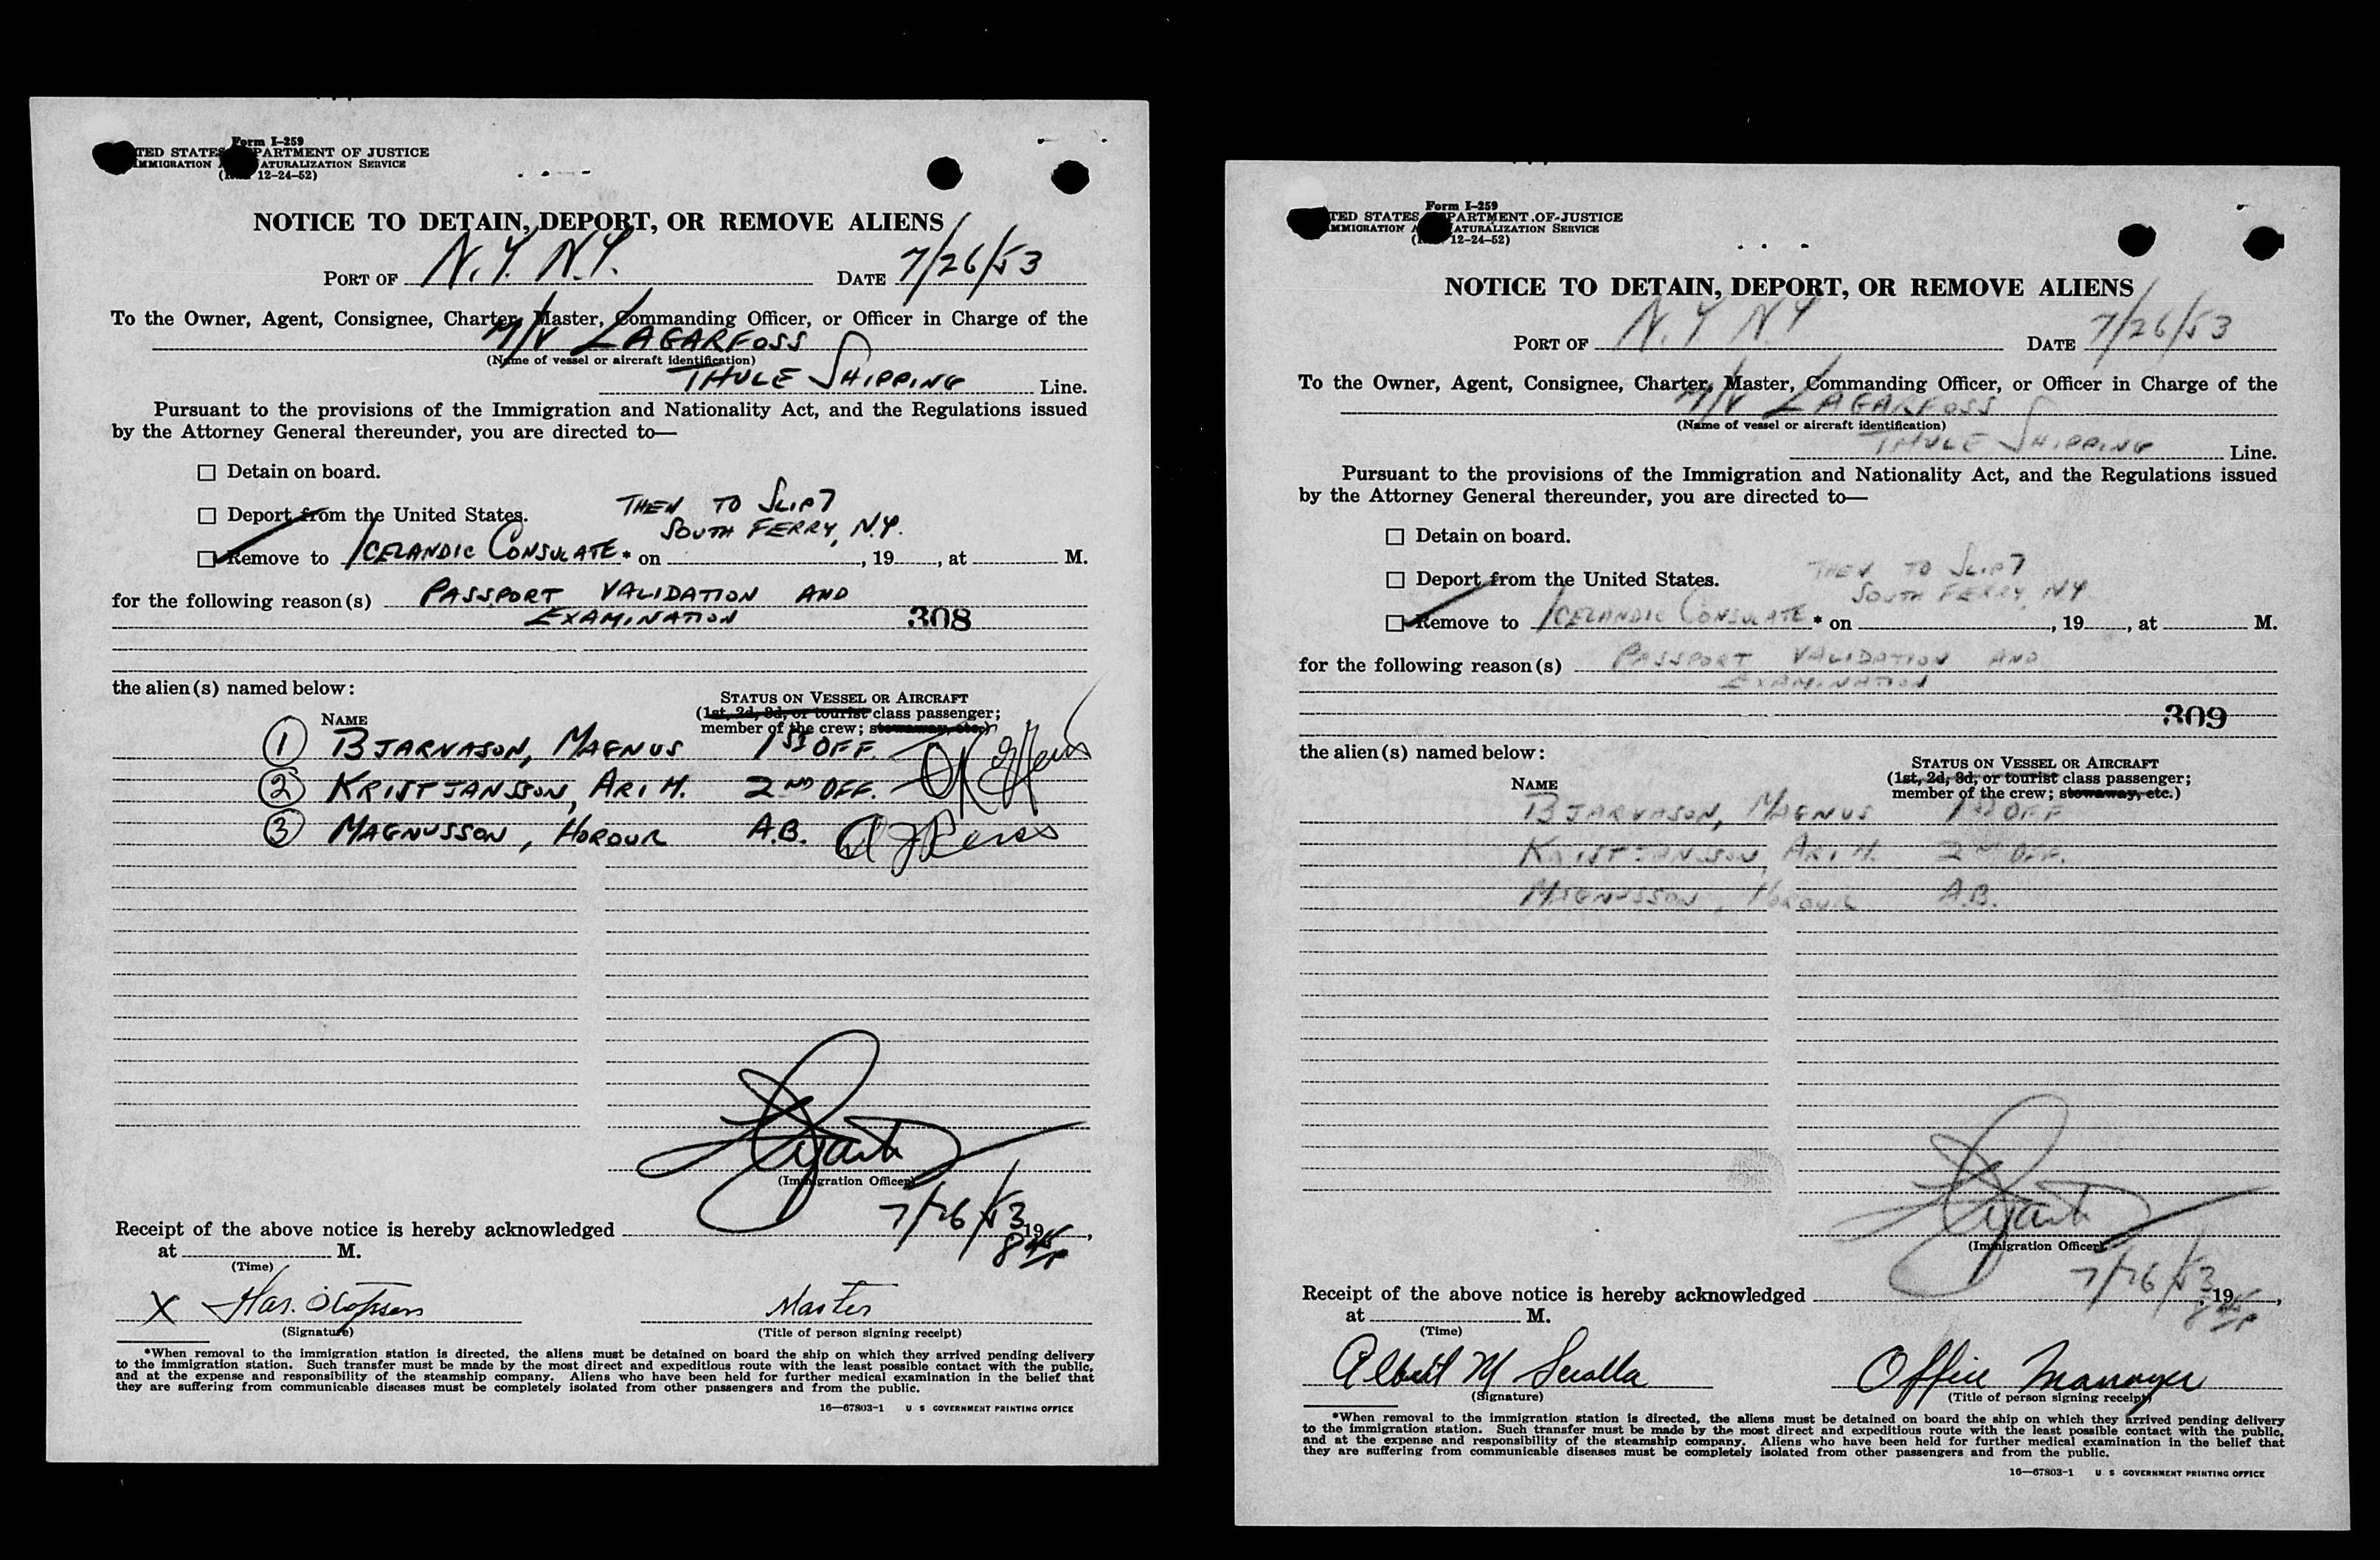 Form I-259
TED STATES PARTMENT OF JUSTICE
MMIGRATION A ATURALIZATION SERVICE
( 12-24-52)
NOTICE TO DETAIN, DEPORT, OR REMOVE ALIENS
PORT OF N.Y. N.Y. DATE 7/26/53
To the Owner, Agent, Consignee, Charter, Master, Commanding Officer, or Officer in Charge of the
M/V LAGARFOSS
(Name of vessel or aircraft identification)
THULE SHIPPING Line.
Pursuant to the provisions of the Immigration and Nationality Act, and the Regulations issued
by the Attorney General thereunder, you are directed to—
☐ Detain on board.
☐ Deport from the United States. THEN TO SLIP 7
SOUTH FERRY, N.Y.
☐ Remove to ICELANDIC CONSULATE * on , 19 , at M.
for the following reason(s) PASSPORT VALIDATION AND
EXAMINATION 308
the alien(s) named below:
STATUS ON VESSEL OR AIRCRAFT
NAME (1st, 2d, 3d, or tourist class passenger;
member of the crew; stowaway, etc.)
1 BJARNASON, MAGNUS 1ST OFF.
2 KRISTJANSSON, ARI H. 2ND OFF.
3 MAGNUSSON, HORDUR A.B.
(Immigration Officer)
7/26/53
Receipt of the above notice is hereby acknowledged 19 ,
at M. 8 45 P
(Time)
X Master
(Signature) (Title of person signing receipt)
*When removal to the immigration station is directed, the aliens must be detained on board the ship on which they arrived pending delivery
to the immigration station. Such transfer must be made by the most direct and expeditious route with the least possible contact with the public,
and at the expense and responsibility of the steamship company. Aliens who have been held for further medical examination in the belief that
they are suffering from communicable diseases must be completely isolated from other passengers and from the public.
16—67803-1 U S GOVERNMENT PRINTING OFFICE
Form I-259
TED STATES PARTMENT OF JUSTICE
MMIGRATION A ATURALIZATION SERVICE
( 12-24-52)
NOTICE TO DETAIN, DEPORT, OR REMOVE ALIENS
PORT OF N.Y N.Y DATE 7/26/53
To the Owner, Agent, Consignee, Charter, Master, Commanding Officer, or Officer in Charge of the
M/V LAGARFOSS
(Name of vessel or aircraft identification)
THULE SHIPPING Line.
Pursuant to the provisions of the Immigration and Nationality Act, and the Regulations issued
by the Attorney General thereunder, you are directed to—
☐ Detain on board.
☐ Deport from the United States. THEN TO SLIP 7
SOUTH FERRY, N.Y.
☐ Remove to ICELANDIC CONSULATE * on , 19 , at M.
for the following reason(s) PASSPORT VALIDATION AND
EXAMINATION
309
the alien(s) named below:
STATUS ON VESSEL OR AIRCRAFT
NAME (1st, 2d, 3d, or tourist class passenger;
member of the crew; stowaway, etc.)
BJARNASON, MAGNUS 1ST OFF
KRISTJANSSON, ARI H. 2ND OFF.
MAGNUSSON, HORDUR A.B.
(Immigration Officer)
7/26/53
Receipt of the above notice is hereby acknowledged , 19 ,
at M. 8 45 P
(Time)
Albert M Scialla Office Manager
(Signature) (Title of person signing receipt)
*When removal to the immigration station is directed, the aliens must be detained on board the ship on which they arrived pending delivery
to the immigration station. Such transfer must be made by the most direct and expeditious route with the least possible contact with the public,
and at the expense and responsibility of the steamship company. Aliens who have been held for further medical examination in the belief that
they are suffering from communicable diseases must be completely isolated from other passengers and from the public.
16—67803-1 U S GOVERNMENT PRINTING OFFICE